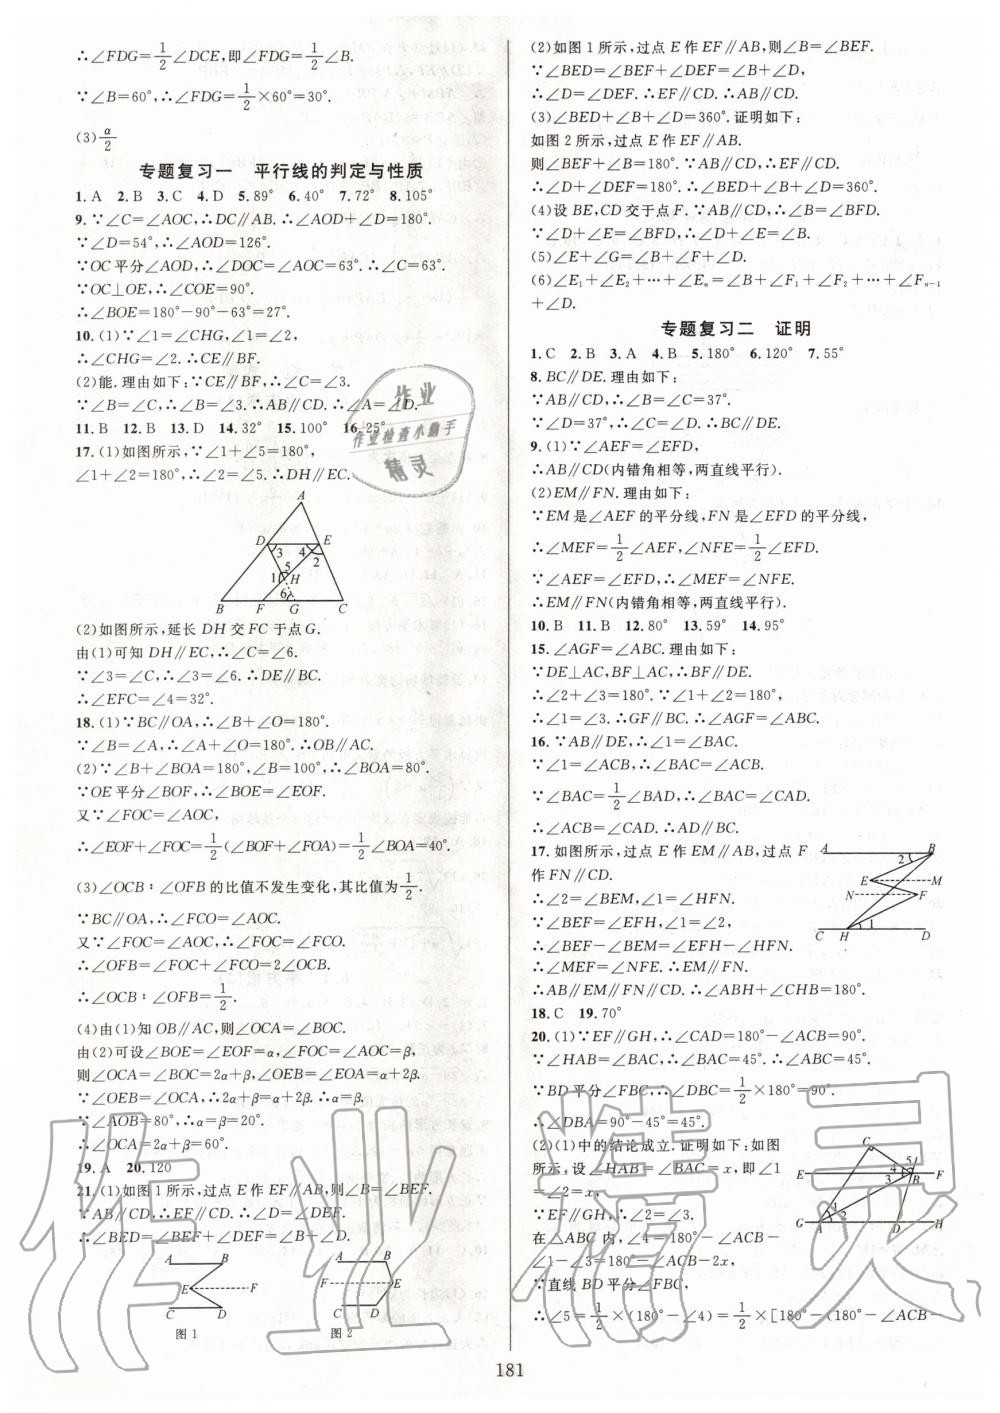 ∴∠FDG=1/2∠DCE,即∠FDG=1/2∠B.
∵∠B=60°,∴∠FDG=1/2×60°=30°.
(3)α/2
专题复习一 平行线的判定与性质
1. A 2. B 3. C 4. D 5. 89° 6. 40° 7. 72° 8. 105°
9. ∵∠C=∠AOC,∴DC∥AB.∴∠AOD+∠D=180°.
∵∠D=54°,∴∠AOD=126°.
∵OC平分∠AOD,∴∠DOC=∠AOC=63°.
∵OC⊥OE,∴∠COE=90°.
∴∠BOE=180°-90°-63°=27°.
10. (1)∵∠1=∠CHG,∠1=∠2,
∴∠CHG=∠2.∴CE∥BF.
(2)能.理由如下:∵CE∥BF,∴∠C=∠3.
∵∠B=∠C,∴∠B=∠3.∴AB∥CD.∴∠A=∠D.
11. B 12. B 13. D 14. 32° 15. 100° 16. 25°
17. (1)如图所示,∵∠1+∠5=180°,
∠1+∠2=180°,∴∠2=∠5.∴DH∥EC.
A
D 3 4 E
2
1 5 H
6
B F G C
(2)如图所示,延长DH交FC于点G.
由(1)可知DH∥EC,∴∠C=∠6.
∵∠3=∠C,∴∠3=∠6.∴DE∥BC.
∴∠EFC=∠4=32°.
18. (1)∵BC∥OA,∴∠B+∠O=180°.
∵∠B=∠A,∴∠A+∠O=180°.∴OB∥AC.
(2)∵∠B+∠BOA=180°,∠B=100°,∴∠BOA=80°.
∵OE平分∠BOF,∴∠BOE=∠EOF.
又∵∠FOC=∠AOC,
∴∠EOF+∠FOC=1/2(∠BOF+∠FOA)=1/2∠BOA=40°.
(3)∠OCB∶∠OFB的比值不发生变化,其比值为1/2.
∵BC∥OA,∴∠FCO=∠AOC.
又∵∠FOC=∠AOC,∴∠FOC=∠FCO.
∴∠OFB=∠FOC+∠FCO=2∠OCB.
∴∠OCB∶∠OFB=1/2.
(4)由(1)知OB∥AC,则∠OCA=∠BOC.
由(2)可设∠BOE=∠EOF=α,∠FOC=∠AOC=β,
则∠OCA=∠BOC=2α+β,∠OEB=∠EOA=α+2β.
∵∠OEB=∠OCA,∴2α+β=α+2β.∴α=β.
∵∠AOB=80°,∴α=β=20°.
∴∠OCA=2α+β=60°.
19. A 20. 120
21. (1)如图1所示,过点E作EF∥AB,则∠B=∠BEF.
∵AB∥CD,∴EF∥CD.∴∠D=∠DEF.
∴∠BED=∠BEF+∠DEF=∠B+∠D.
A B A B
E F F E
C D C D
图1 图2
(2)如图1所示,过点E作EF∥AB,则∠B=∠BEF.
∵∠BED=∠BEF+∠DEF=∠B+∠D,
∴∠D=∠DEF.∴EF∥CD.∴AB∥CD.
(3)∠BED+∠B+∠D=360°.证明如下:
如图2所示,过点E作EF∥AB.
则∠BEF+∠B=180°.∵AB∥CD,∴EF∥CD.
∴∠D+∠DEF=180°.∴∠BED+∠B+∠D=360°.
(4)设BE,CD交于点F.∵AB∥CD,∴∠B=∠BFD.
∵∠D+∠E=∠BFD,∴∠D+∠E=∠B.
(5)∠E+∠G=∠B+∠F+∠D.
(6)∠E₁+∠E₂+…+∠Eₙ=∠B+∠F₁+∠F₂+…+∠Fₙ₋₁
+∠D.
专题复习二 证明
1. C 2. B 3. A 4. B 5. 180° 6. 120° 7. 55°
8. BC∥DE.理由如下:
∵AB∥CD,∴∠B=∠C=37°.
∵∠D=37°,∴∠C=∠D.∴BC∥DE.
9. (1)∵∠AEF=∠EFD,
∴AB∥CD(内错角相等,两直线平行).
(2)EM∥FN.理由如下:
∵EM是∠AEF的平分线,FN是∠EFD的平分线,
∴∠MEF=1/2∠AEF,∠NFE=1/2∠EFD.
∵∠AEF=∠EFD,∴∠MEF=∠NFE.
∴EM∥FN(内错角相等,两直线平行).
10. B 11. B 12. 80° 13. 59° 14. 95°
15. ∠AGF=∠ABC.理由如下:
∵DE⊥AC,BF⊥AC,∴BF∥DE.
∴∠2+∠3=180°.∵∠1+∠2=180°,
∴∠1=∠3.∴GF∥BC.∴∠AGF=∠ABC.
16. ∵AB∥DE,∴∠1=∠BAC.
∵∠1=∠ACB,∴∠BAC=∠ACB.
∵∠BAC=1/2∠BAD,∴∠BAC=∠CAD.
∴∠ACB=∠CAD.∴AD∥BC.
17. 如图所示,过点E作EM∥AB,过点F
作FN∥CD.
∴∠2=∠BEM,∠1=∠HFN.
∵∠BEF=∠EFH,∠1=∠2,
∴∠BEF-∠BEM=∠EFH-∠HFN.
∴∠MEF=∠NFE.∴EM∥FN.
∴AB∥EM∥FN∥CD.∴∠ABH+∠CHB=180°.
A B
2
E M
N F
1
C H D
18. C 19. 70°
20. (1)∵EF∥GH,∴∠CAD=180°-∠ACB=90°.
∵∠HAB=∠BAC,∴∠BAC=∠ABC=45°.
∵BD平分∠FBC,∴∠DBC=1/2×180°=90°.
∴∠DBA=90°-45°=45°.
(2)(1)中的结论成立.证明如下:如图
所示,设∠HAB=∠BAC=x,即∠1
=∠2=x,
∵EF∥GH,∴∠2=∠3.
在△ABC内,∠4=180°-∠ACB-
∠1-∠3=180°-∠ACB-2x,
∵直线BD平分∠FBC,
∴∠5=1/2×(180°-∠4)=1/2×[180°-(180°-∠ACB-
C
5
E 4 F
3 B
1
2
G A D H
181
作业
作业检查小助手
精灵
作业精灵